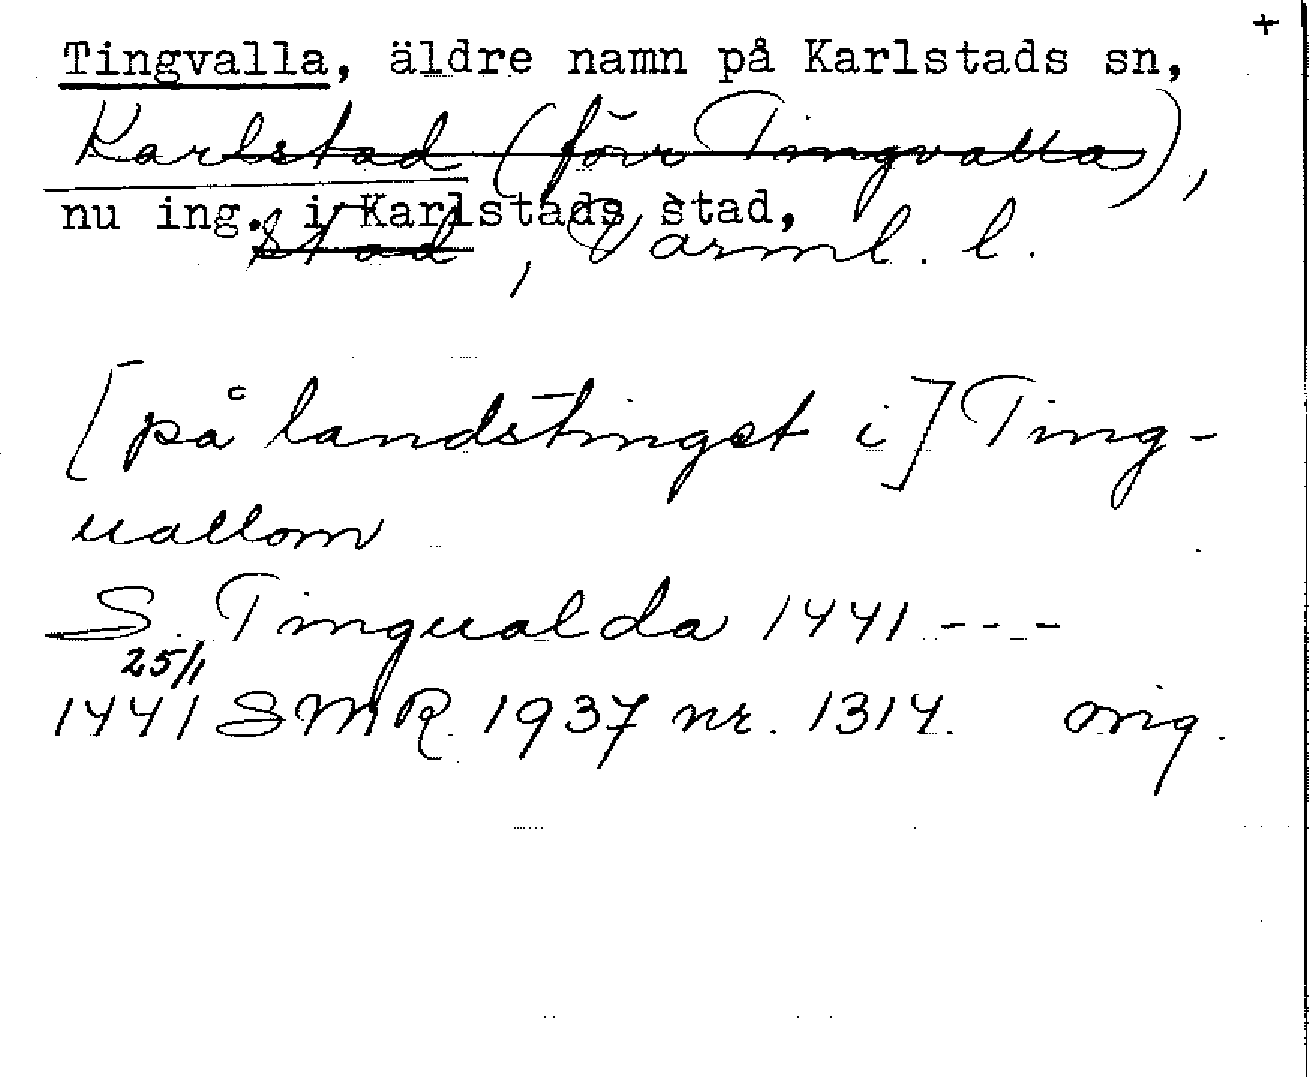 +
Tingvalla, äldre namn på Karlstads sn,
Karlstad (förr Tingvalla),
nu ing. i Karlstads stad,
stad, Värml. l.
[på landstinget i] Ting-
uallom
S. Tingualda 1441 ---
25/1
1441 SMR 1937 nr. 1314. orig.